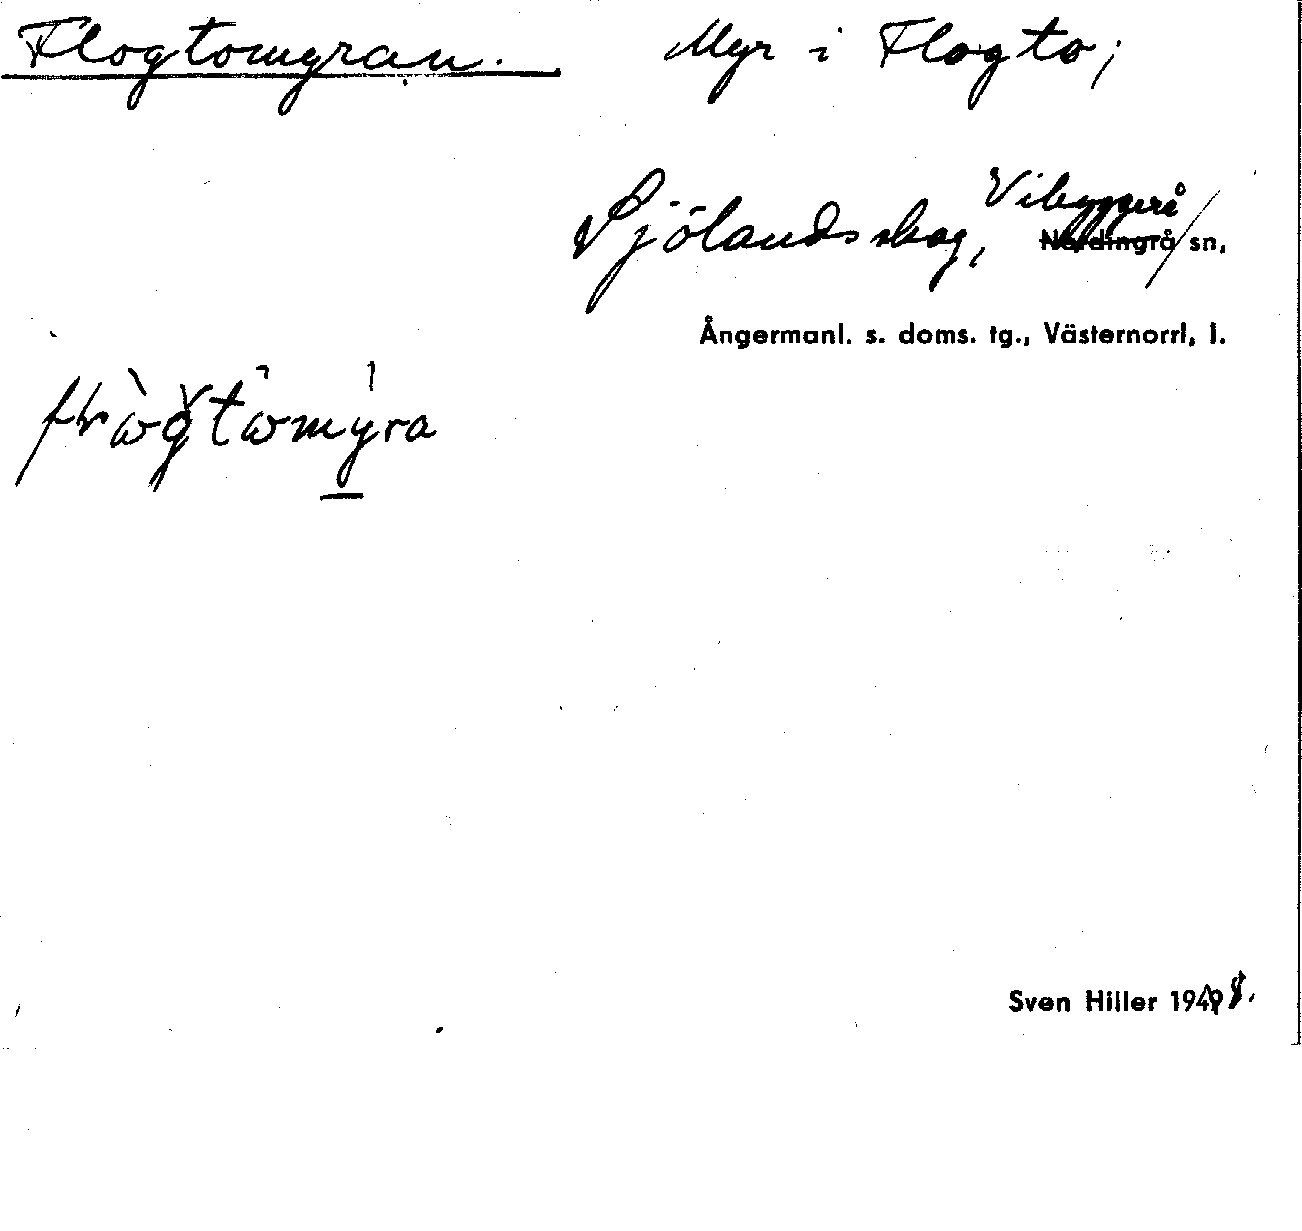 Flogtomyran. Myr i Flogto;
Sjölandsskog, Vibyggerå
Nordingrå sn,
Ångermanl. s. doms. tg., Västernorrl, l.
Sven Hiller 1948.